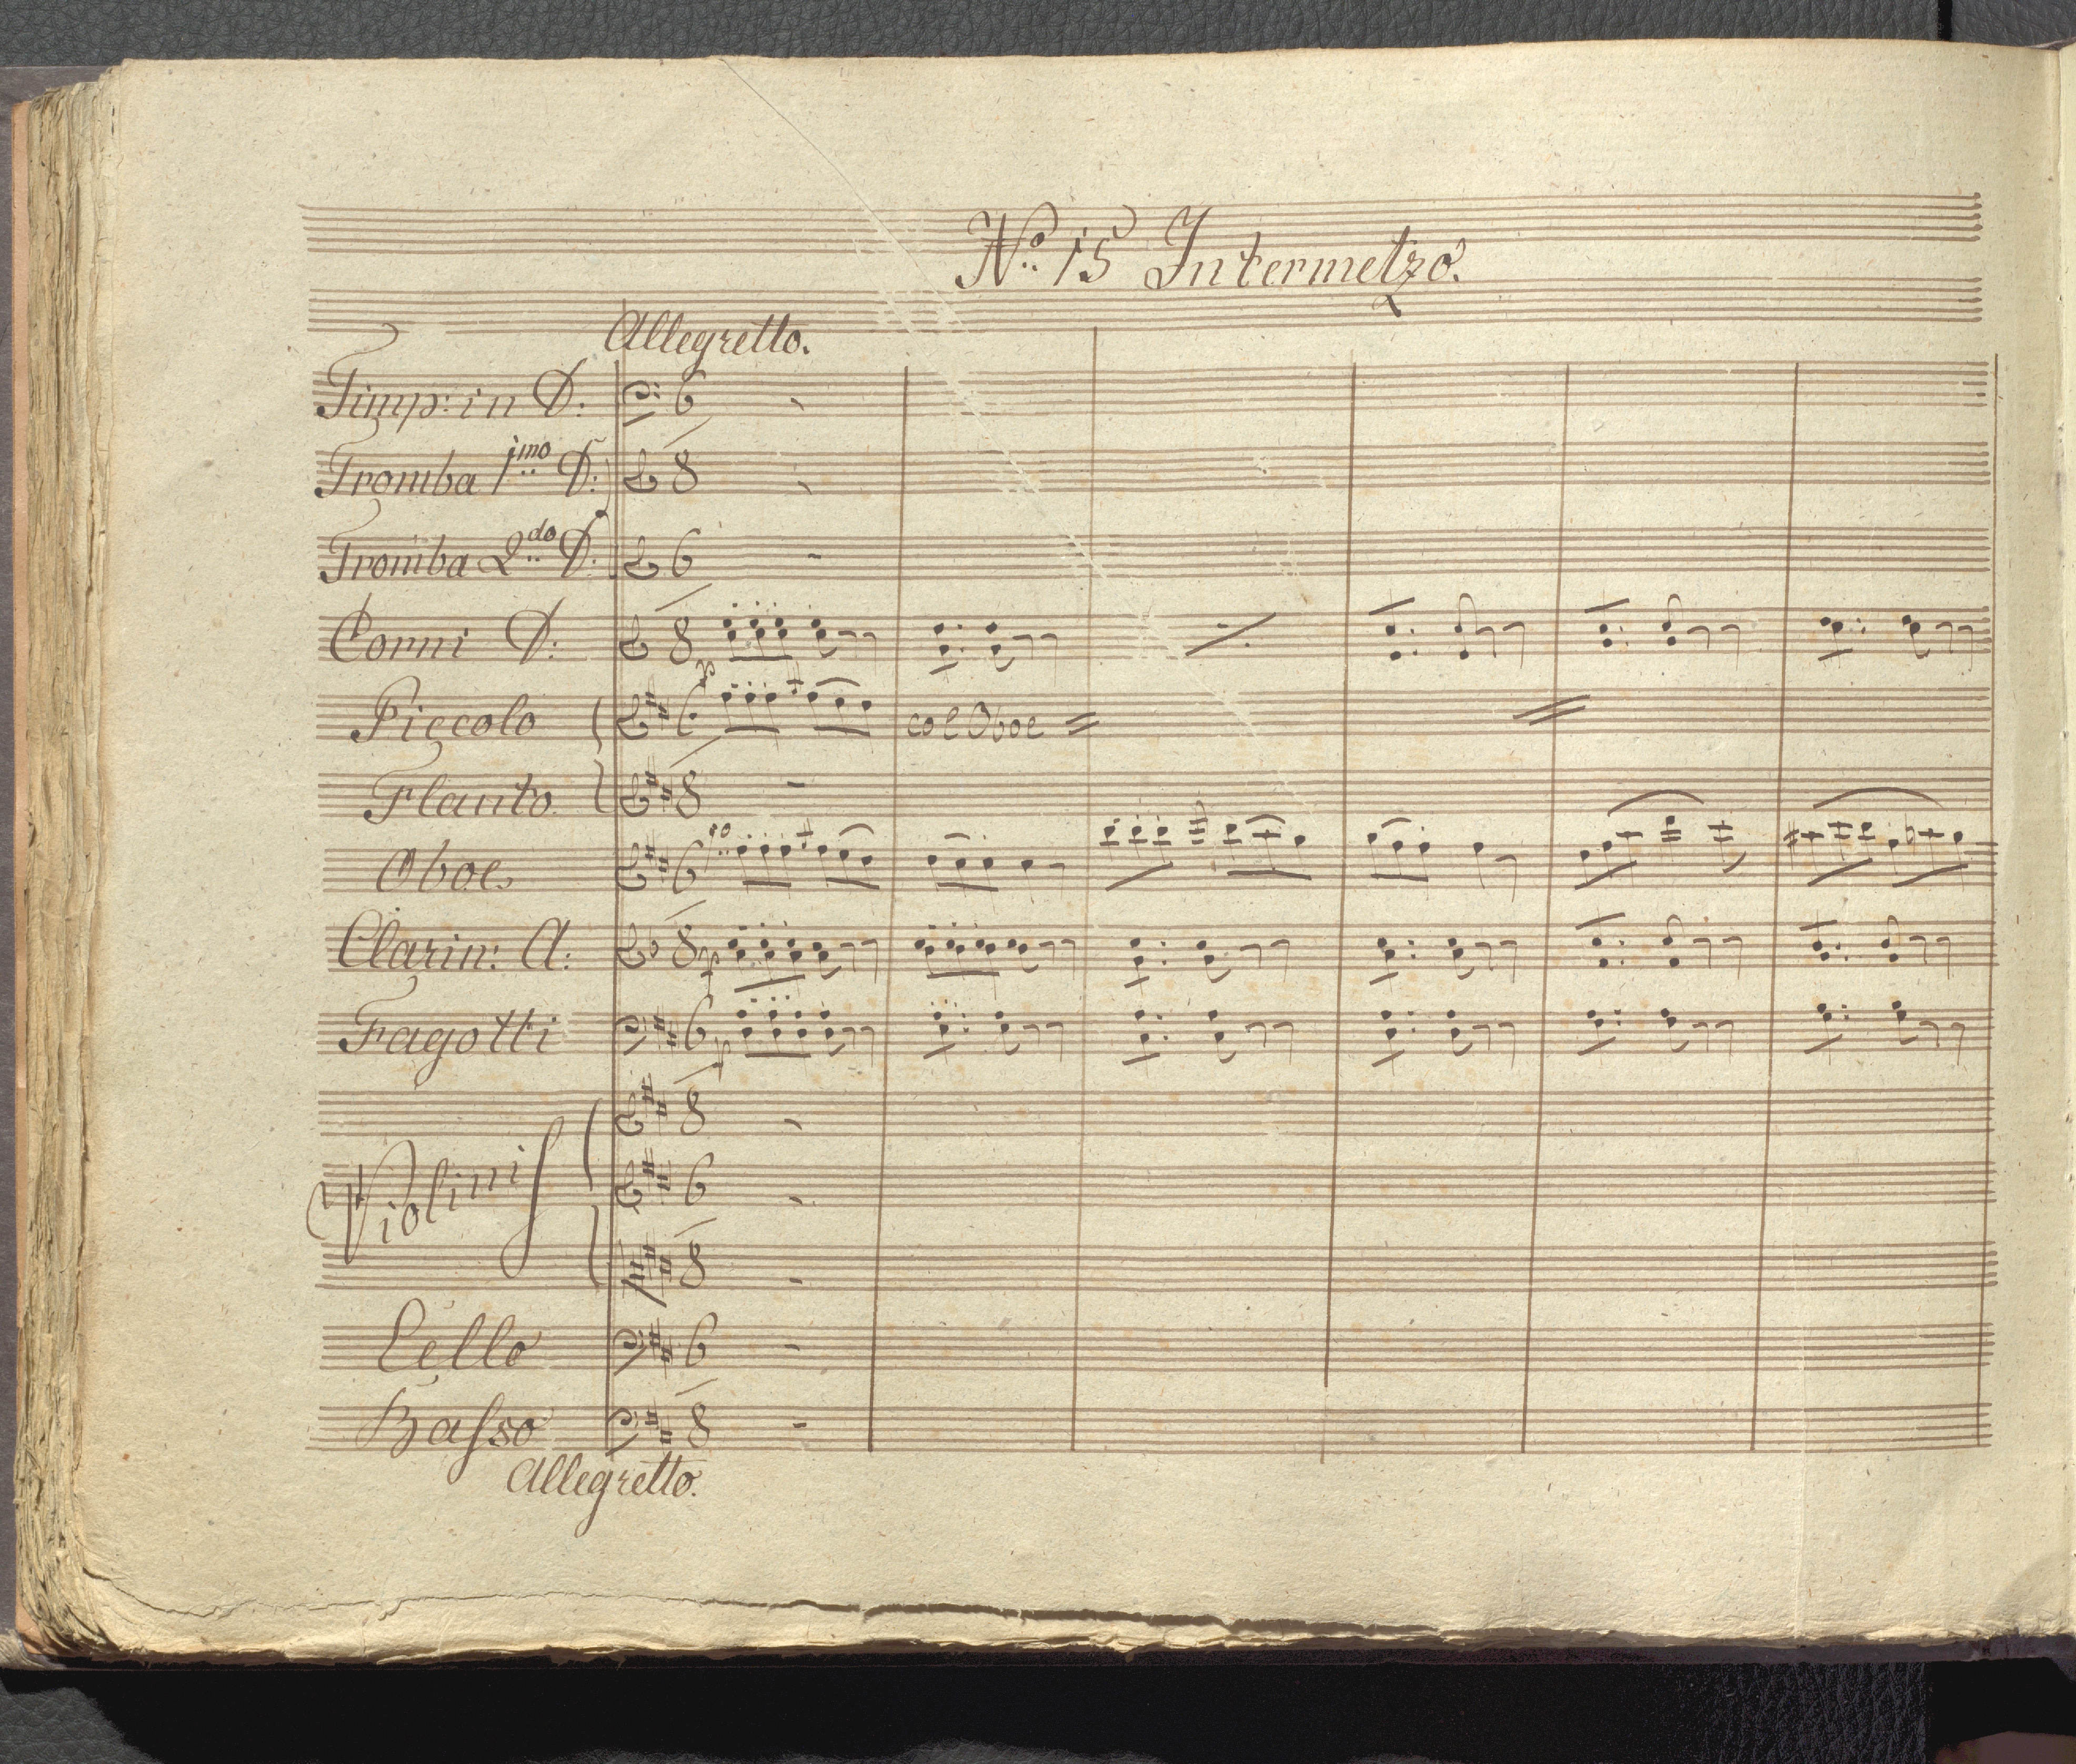 No. 15 Intermetzo.
Allegretto.
Timp: in D:
Tromba 1mo D:
Tromba 2do D:
Corni D:
Piccolo
col Oboe
Flauto
Oboe
Clarin: A:
Fagotti
Violinis
Cello
Basso
Allegretto.